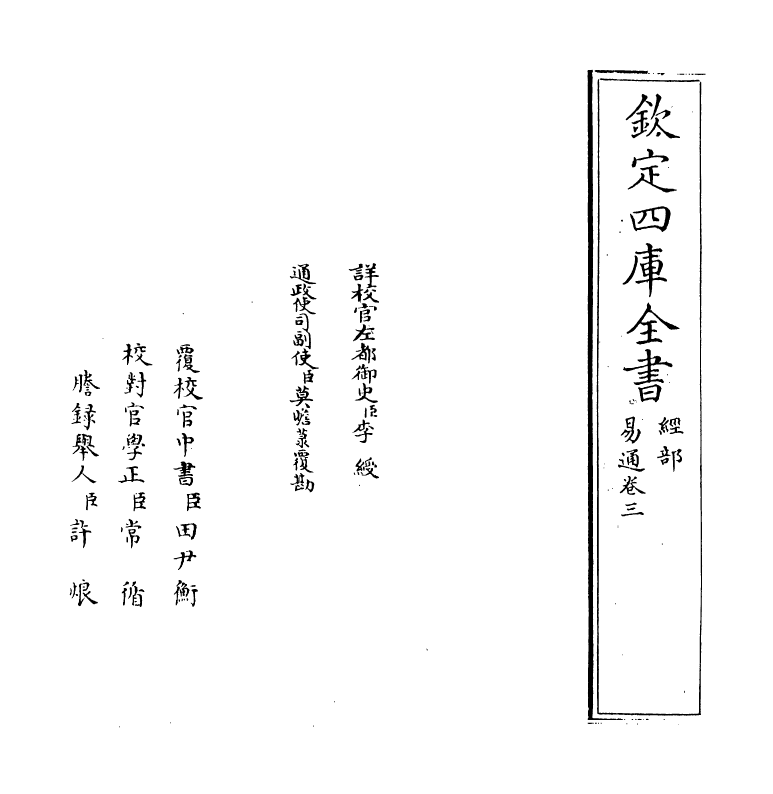 欽定四庫全書
經部
易通卷三
詳校官左都御史臣李綬
通政使司副使臣莫瞻菉覆勘
覆校官中書臣田尹衡
校對官學正臣常循
謄錄舉人臣許烺